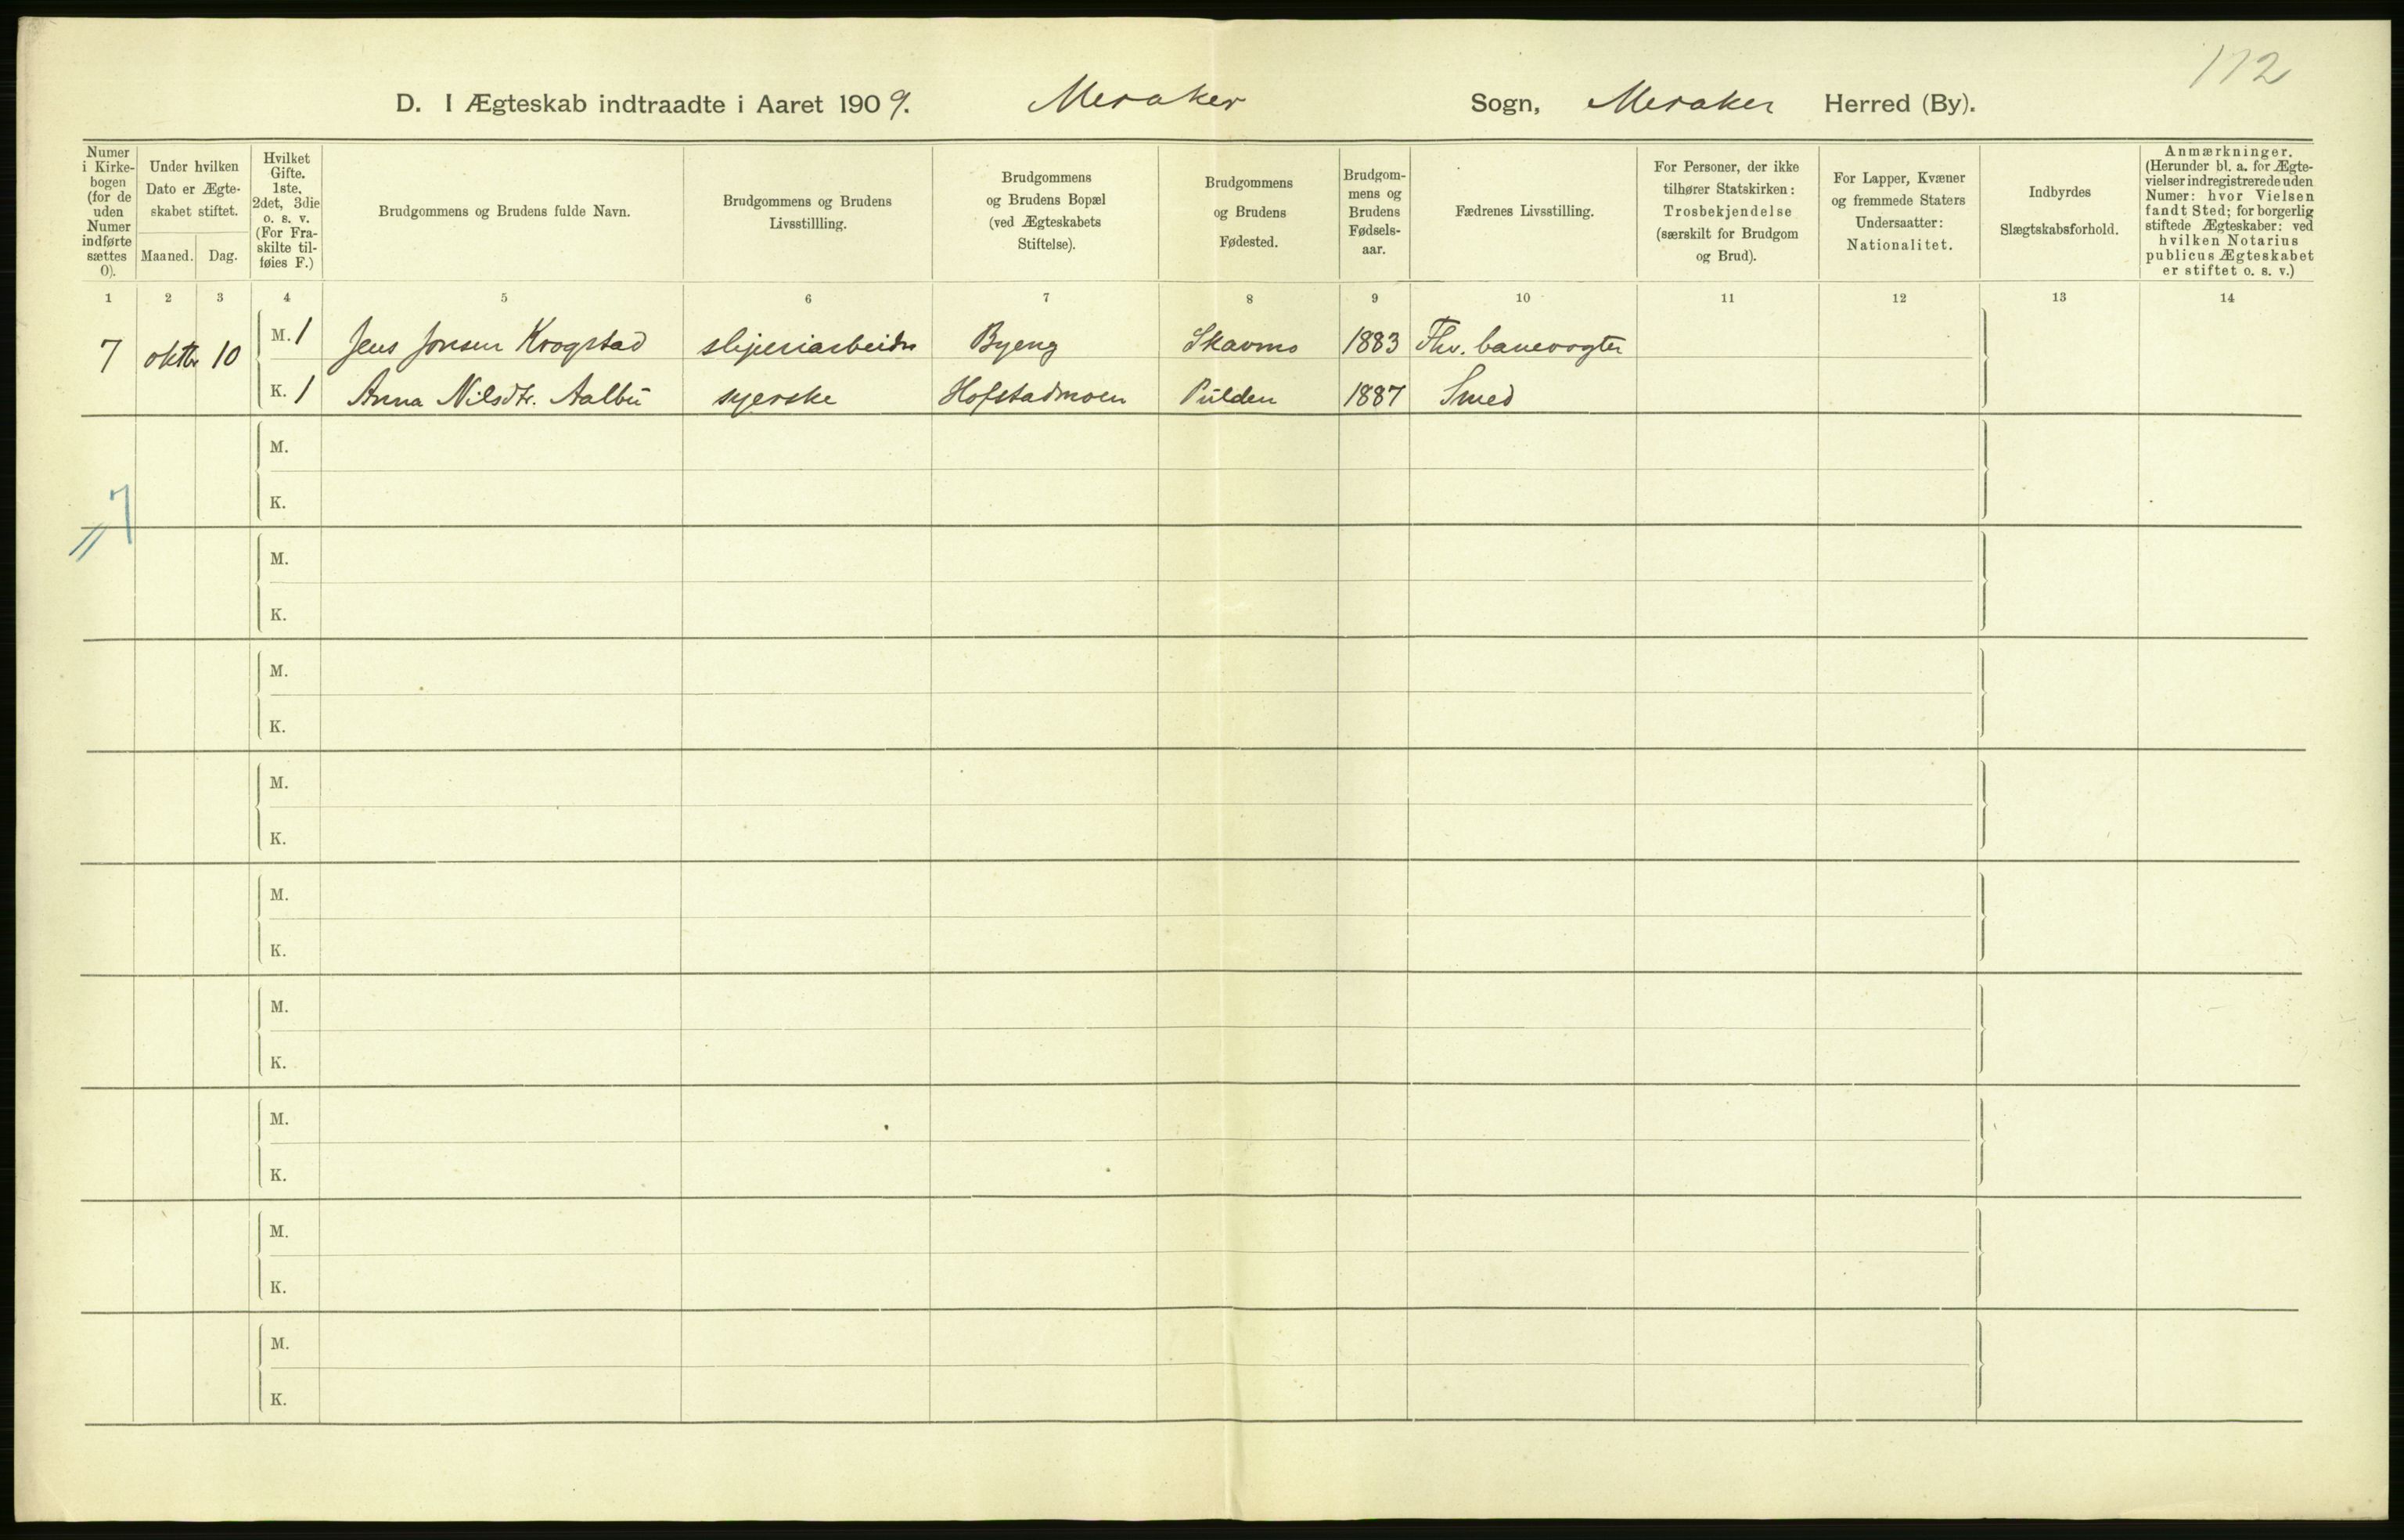 112
D. I Ægteskab indtraadte i Aaret 1909. Meraker Sogn, Meraker Herred (By).
Numer i Kirkebogen (for de uden Numer indførte sættes 0).
Under hvilken Dato er Ægteskabet stiftet.
Maaned. Dag.
Hvilket Gifte. 1ste, 2det, 3die o. s. v. (For Fraskilte tilføies F.)
Brudgommens og Brudens fulde Navn.
Brudgommens og Brudens Livsstillling.
Brudgommens og Brudens Bopæl (ved Ægteskabets Stiftelse).
Brudgommens og Brudens Fødested.
Brudgommens og Brudens Fødselsaar.
Fædrenes Livsstilling.
For Personer, der ikke tilhører Statskirken: Trosbekjendelse (særskilt for Brudgom og Brud).
For Lapper, Kvæner og fremmede Staters Undersaatter: Nationalitet.
Indbyrdes Slægtskabsforhold.
Anmærkninger. (Herunder bl. a. for Ægtevielser indregistrerede uden Numer: hvor Vielsen fandt Sted; for borgerlig stiftede Ægteskaber: ved hvilken Notarius publicus Ægteskabet er stiftet o. s. v.)
1 2 3 4 5 6 7 8 9 10 11 12 13 14
7 oktbr 10 M. 1 Jens Jonsen Krogstad sliperiarbeider Byeng Skavmo 1883 Fhv. banevogter
K. 1 Anna Nilsdtr. Aalbu syerske Hofstadmoen Pulden 1887 Smed
M.
7
K.
M.
K.
M.
K.
M.
K.
M.
K.
M.
K.
M.
K.
M.
K.
M.
K.